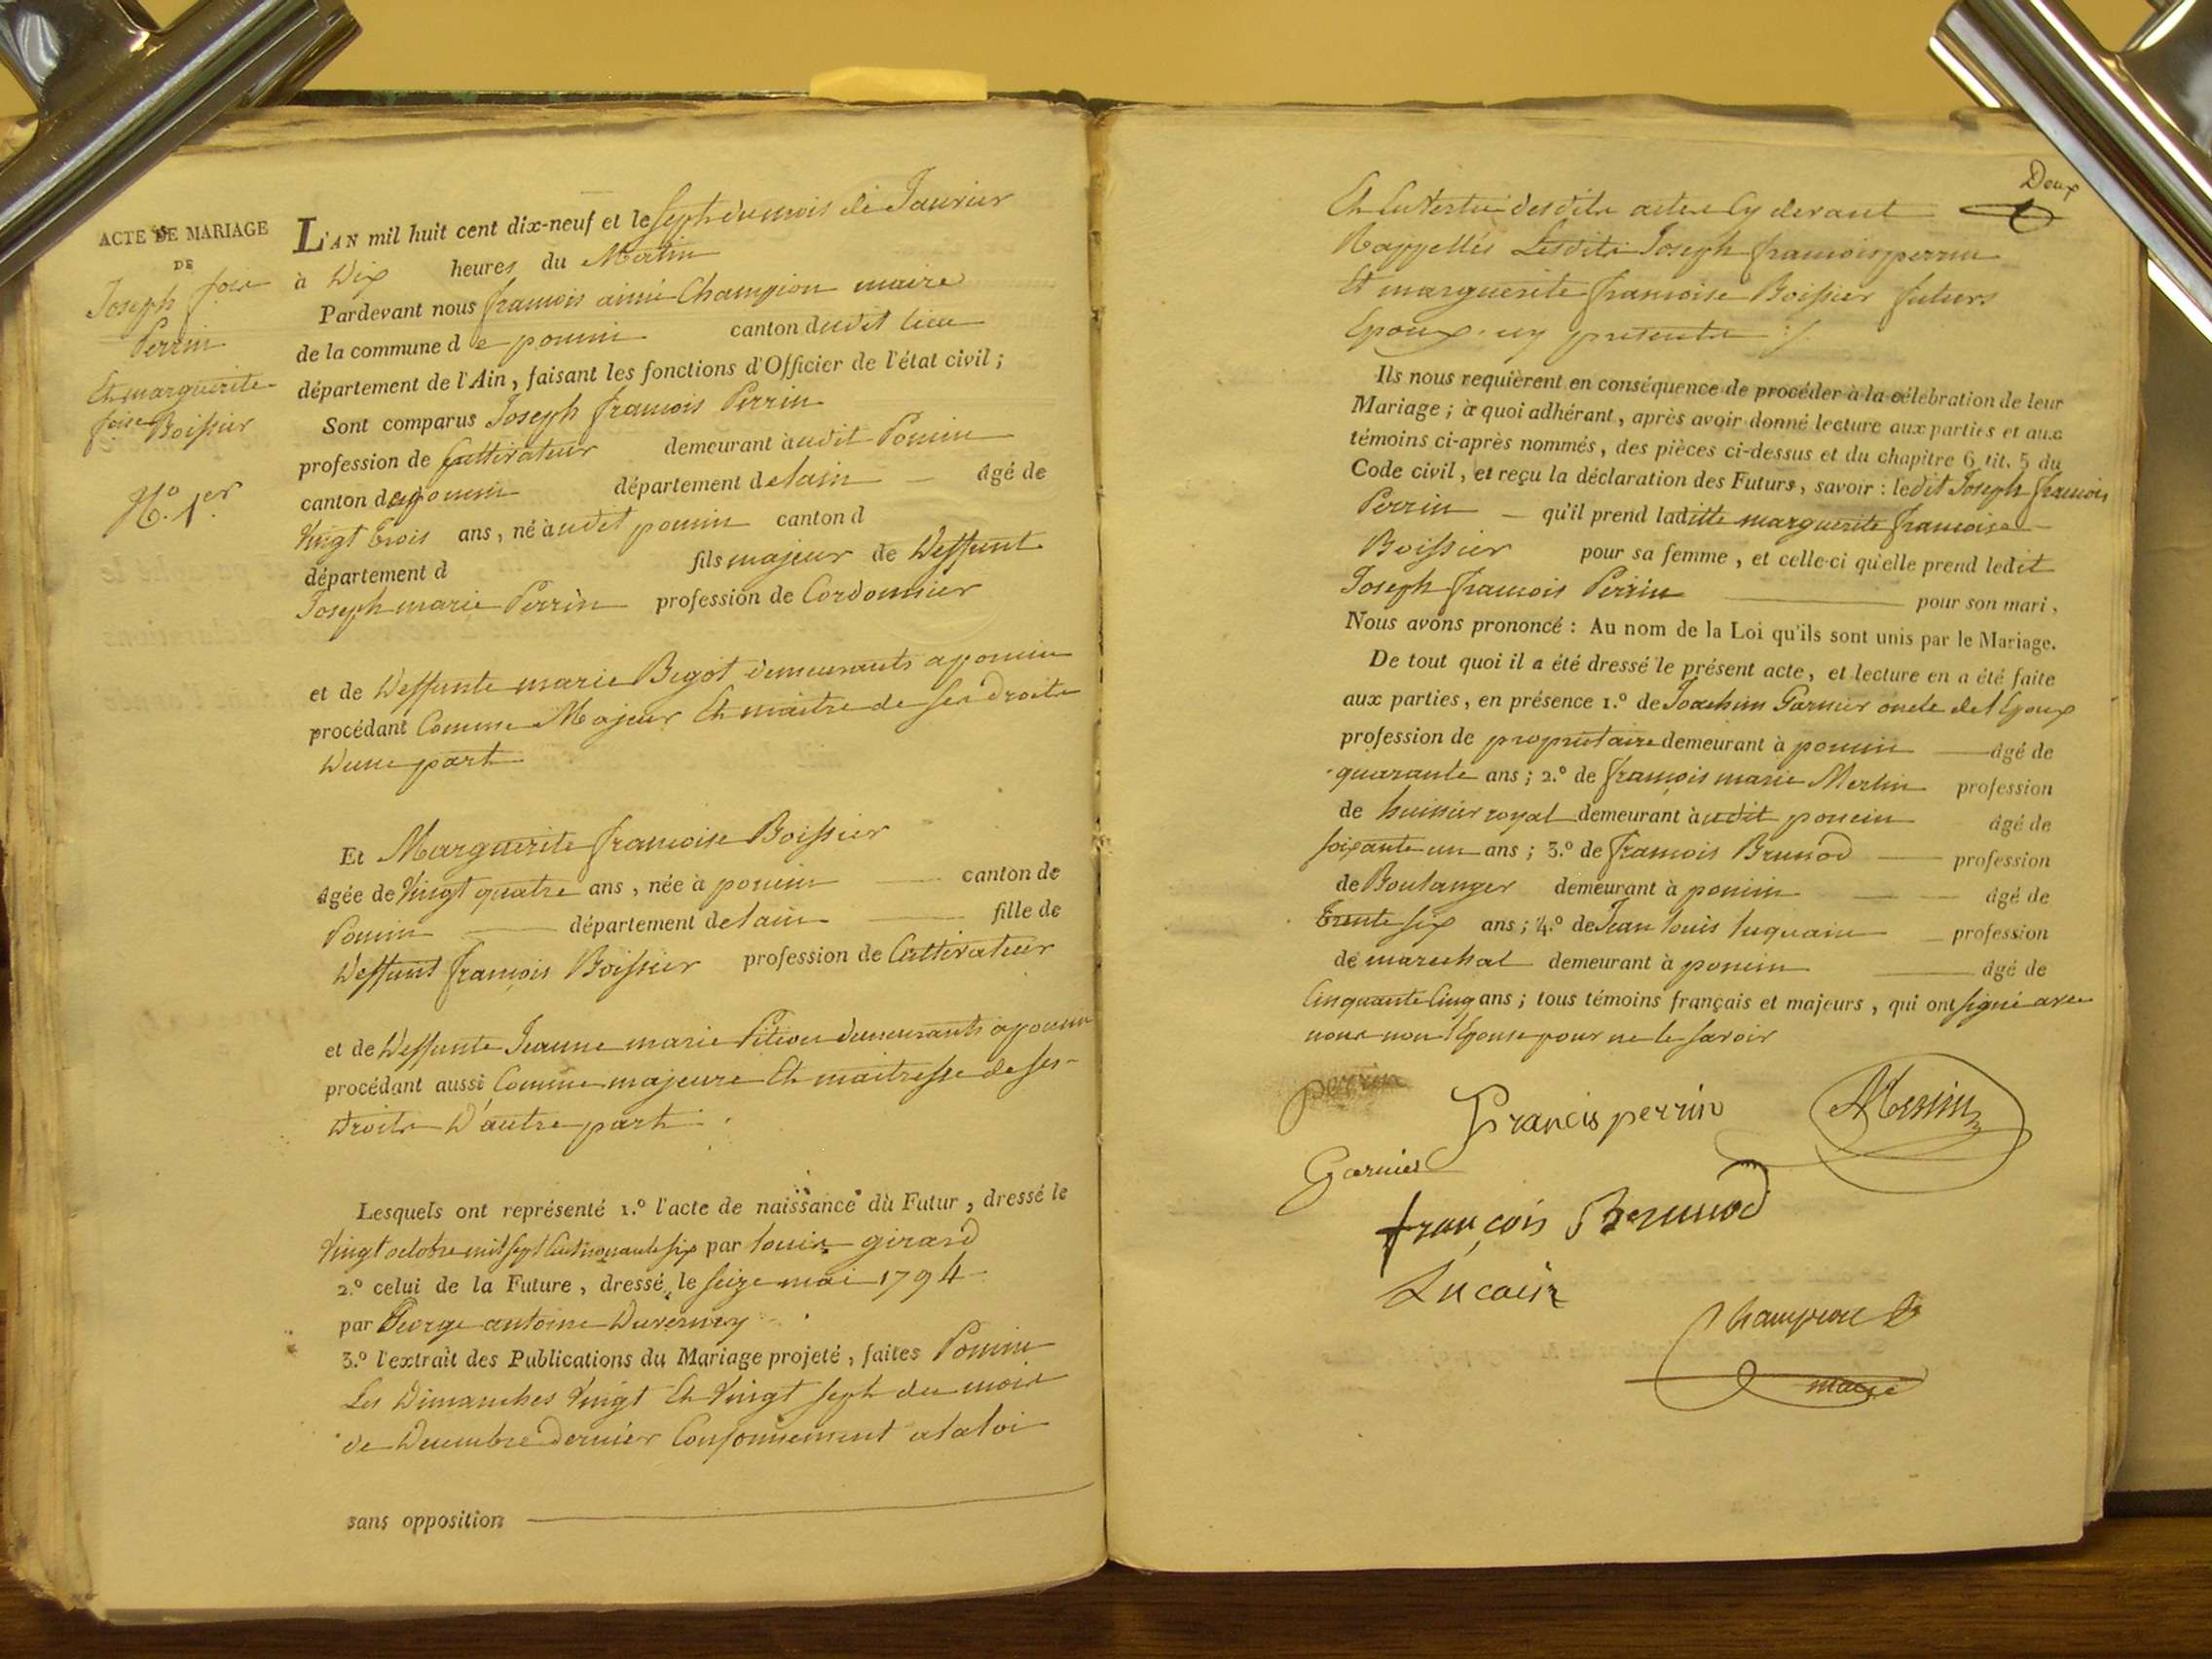 ACTE DE MARIAGE
DE
Joseph fois
Perrin
Et marguerite
foise Boissier
N.º 1.er
L'AN mil huit cent dix-neuf et le sept du mois de Janvier
à Dix heures du Matin
Pardevant nous francois aimé Champion maire
de la commune de poncin canton dudit lieu
département de l'Ain, faisant les fonctions d'Officier de l'état civil;
Sont comparus Joseph francois Perrin
profession de Cultivateur demeurant audit Poncin
canton de poncin département de lain âgé de
Vingt trois ans, né audit poncin canton d
département d fils majeur de Deffunt
Joseph marie Perrin profession de Cordonnier
et de Deffunte marie Bigot demeurants a poncin
procédant Comme Majeur Et maitre de ses droits
D'une part
Et Marguerite francoise Boissier
âgée de Vingt quatre ans, née à poncin canton de
Poncin département de lain fille de
Deffunt francois Boissier profession de Cultivateur
et de Deffunte Jeanne marie demeurants a poncin
procédant aussi Comme majeure Et maitresse de ses
droits D'autre part.
Lesquels ont représenté 1.º l'acte de naissance du Futur, dressé le
Vingt octobre mil sept Cent nonante six par louis girard
2.º celui de la Future, dressé le seize mai 1794
par George antoine Duvernay
3.º l'extrait des Publications du Mariage projeté, faites Poncin
Les Dimanches Vingt Et Vingt sept du mois
de Decembre dernier Conformement a la loi
sans opposition
Deux
En Vertu desdits actes Cy devant
Rappellés Lesdits Joseph francois perrin
Et marguerite francoise Boissier futurs
Epoux icy presents ./.
Ils nous requièrent en conséquence de procéder à la célébration de leur
Mariage; à quoi adhérant, après avoir donné lecture aux parties et aux
témoins ci-après nommés, des pièces ci-dessus et du chapitre 6 tit. 5 du
Code civil, et reçu la déclaration des Futurs, savoir: ledit Joseph francois
Perrin qu'il prend laditte marguerite francoise
Boissier pour sa femme, et celle-ci qu'elle prend ledit
Joseph francois Perrin pour son mari,
Nous avons prononcé: Au nom de la Loi qu'ils sont unis par le Mariage.
De tout quoi il a été dressé le présent acte, et lecture en a été faite
aux parties, en présence 1.º de Joachim Garnier oncle de l'Epoux
profession de propriétaire demeurant à poncin âgé de
quarante ans; 2.º de françois marie Merlin profession
de huissier royal demeurant audit poncin âgé de
soixante un ans; 3.º de francois Brunod profession
de Boulanger demeurant à poncin âgé de
trente six ans; 4.º de Jean louis luquain profession
de marechal demeurant à poncin âgé de
Cinquante Cinq ans; tous témoins français et majeurs, qui ont signé avec
nous non l'Epouse pour ne le savoir
perrin
Francis perrin
Merlin
Garnier
françois Brunod
Lucain
Champion
maire